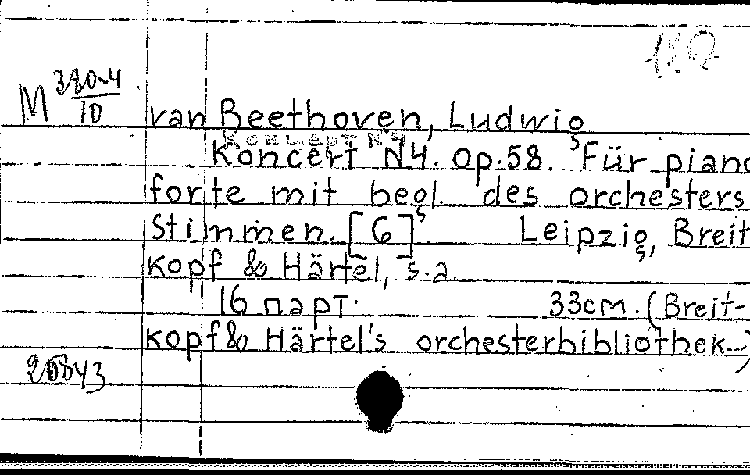 M 380-4/10
van Beethoven, Ludwig
Koncert N4. Op.58. Für piano
forte mit begl. des orchesters
Stimmen. [G] Leipzig, Breit
kopf & Härtel, s.a.
16 парт. 33cm. (Breit-
kopf & Härtel's orchesterbibliothek...)